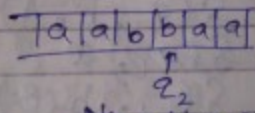 |a|a|b|b|a|a|
↑
q₂